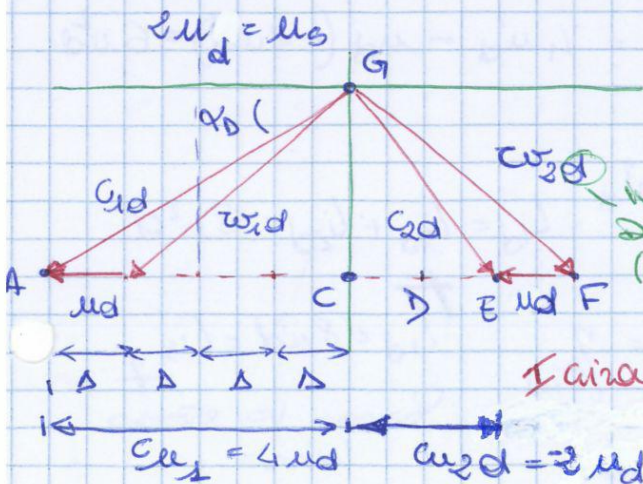 2u_d = u_s
G
α_D (
c_1d
w_1d
c_2d
w_2d
A
u_d
C
D
E
u_d
F
Δ
Δ
Δ
Δ
I
c_u1 = 4u_d
c_u2d = -2u_d